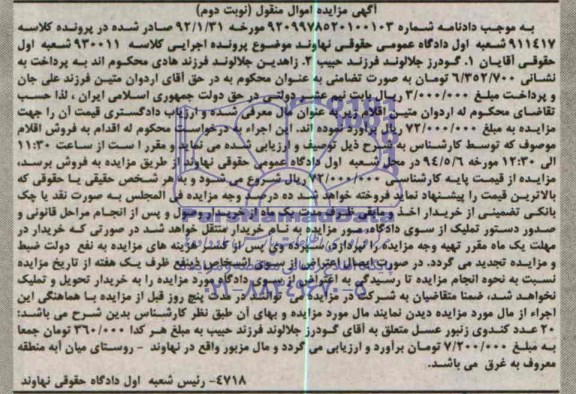 آگهی مزایده اموال منقول (نوبت دوم)
به موجب دادنامه شماره ۹۲۰۹۹۷۸۵۲۰۱۰۰۱۰۳ مورخه ۹۲/۱/۳۱ صادر شده در پرونده کلاسه
۹۱۱۴۱۷ شعبه اول دادگاه عمومی حقوقی نهاوند موضوع پرونده اجرایی کلاسه ۹۳۰۰۱۱ شعبه اول
حقوقی آقایان ۱. گودرز جلالوند فرزند حبیب ۲. زاهدین جلالوند فرزند هادی محکوم اند به پرداخت به
نشانی ۶/۳۵۲/۷۰۰ تومان به صورت تضامنی به عنوان محکوم به در حق آقای اردوان متین فرزند علی جان
و پرداخت مبلغ ۳/۰۰۰/۰۰۰ ریال بابت نیم عشر دولتی در حق دولت جمهوری اسلامی ایران ، لذا حسب
تقاضای محکوم له اردوان متین اقلام زیر به عنوان مال معرفی شده و ارزیاب دادگستری قیمت آن را جهت
مزایده به مبلغ ۷۲/۰۰۰/۰۰۰ ریال برآورد نموده اند. این اجراء به درخواست محکوم له اقدام به فروش اقلام
موصوف که توسط کارشناس به شرح ذیل توصیف و ارزیابی شده می نماید و مقرر است از ساعت ۱۱:۳۰
الی ۱۲:۳۰ مورخه ۹۴/۵/۶ در محل شعبه اول دادگاه عمومی حقوقی نهاوند از طریق مزایده به فروش برسد،
مزایده از قیمت پایه کارشناسی ۷۲/۰۰۰/۰۰۰ ریال شروع می شود و به هر شخص حقیقی یا حقوقی که
بالاترین قیمت را پیشنهاد نماید فروخته خواهد شد ده درصد وجه مزایده فی المجلس به صورت نقد یا چک
بانکی تضمینی از خریدار اخذ و مابقی ظرف مدت یک ماه از خریدار وصول و پس از انجام مراحل قانونی و
صدور دستور تملیک از سوی دادگاه، مورد مزایده به نام خریدار منتقل خواهد شد در صورتی که خریدار در
مهلت یک ماه مقرر تهیه وجه مزایده را نپردازد، سپرده وی پس از کسر هزینه های مزایده به نفع دولت ضبط
و مزایده تجدید می گردد. در صورت ایصال اعتراض از سوی اشخاص ذینفع ظرف یک هفته از تاریخ مزایده
نسبت به نحوه انجام مزایده تا رسیدگی به اعتراض از سوی دادگاه مورد مزایده را به خریدار تحویل و تملیک
نخواهد شد، ضمنا متقاضیان به شرکت در مزایده می توانند در مدت پنج روز قبل از مزایده با هماهنگی این
اجراء از مال مورد مزایده دیدن نمایند مال مورد مزایده و بهای آن طبق نظر کارشناس بدین شرح می باشد:
۲۰ عدد کندوی زنبور عسل متعلق به آقای گودرز جلالوند فرزند حبیب به مبلغ هر کدام ۳۶۰/۰۰۰ تومان جمعا
به مبلغ ۷/۲۰۰/۰۰۰ تومان برآورد و ارزیابی می گردد و مال مزبور واقع در نهاوند - روستای میان آبه منطقه
معروف به غرق می باشد.
۴۷۱۸- رئیس شعبه اول دادگاه حقوقی نهاوند